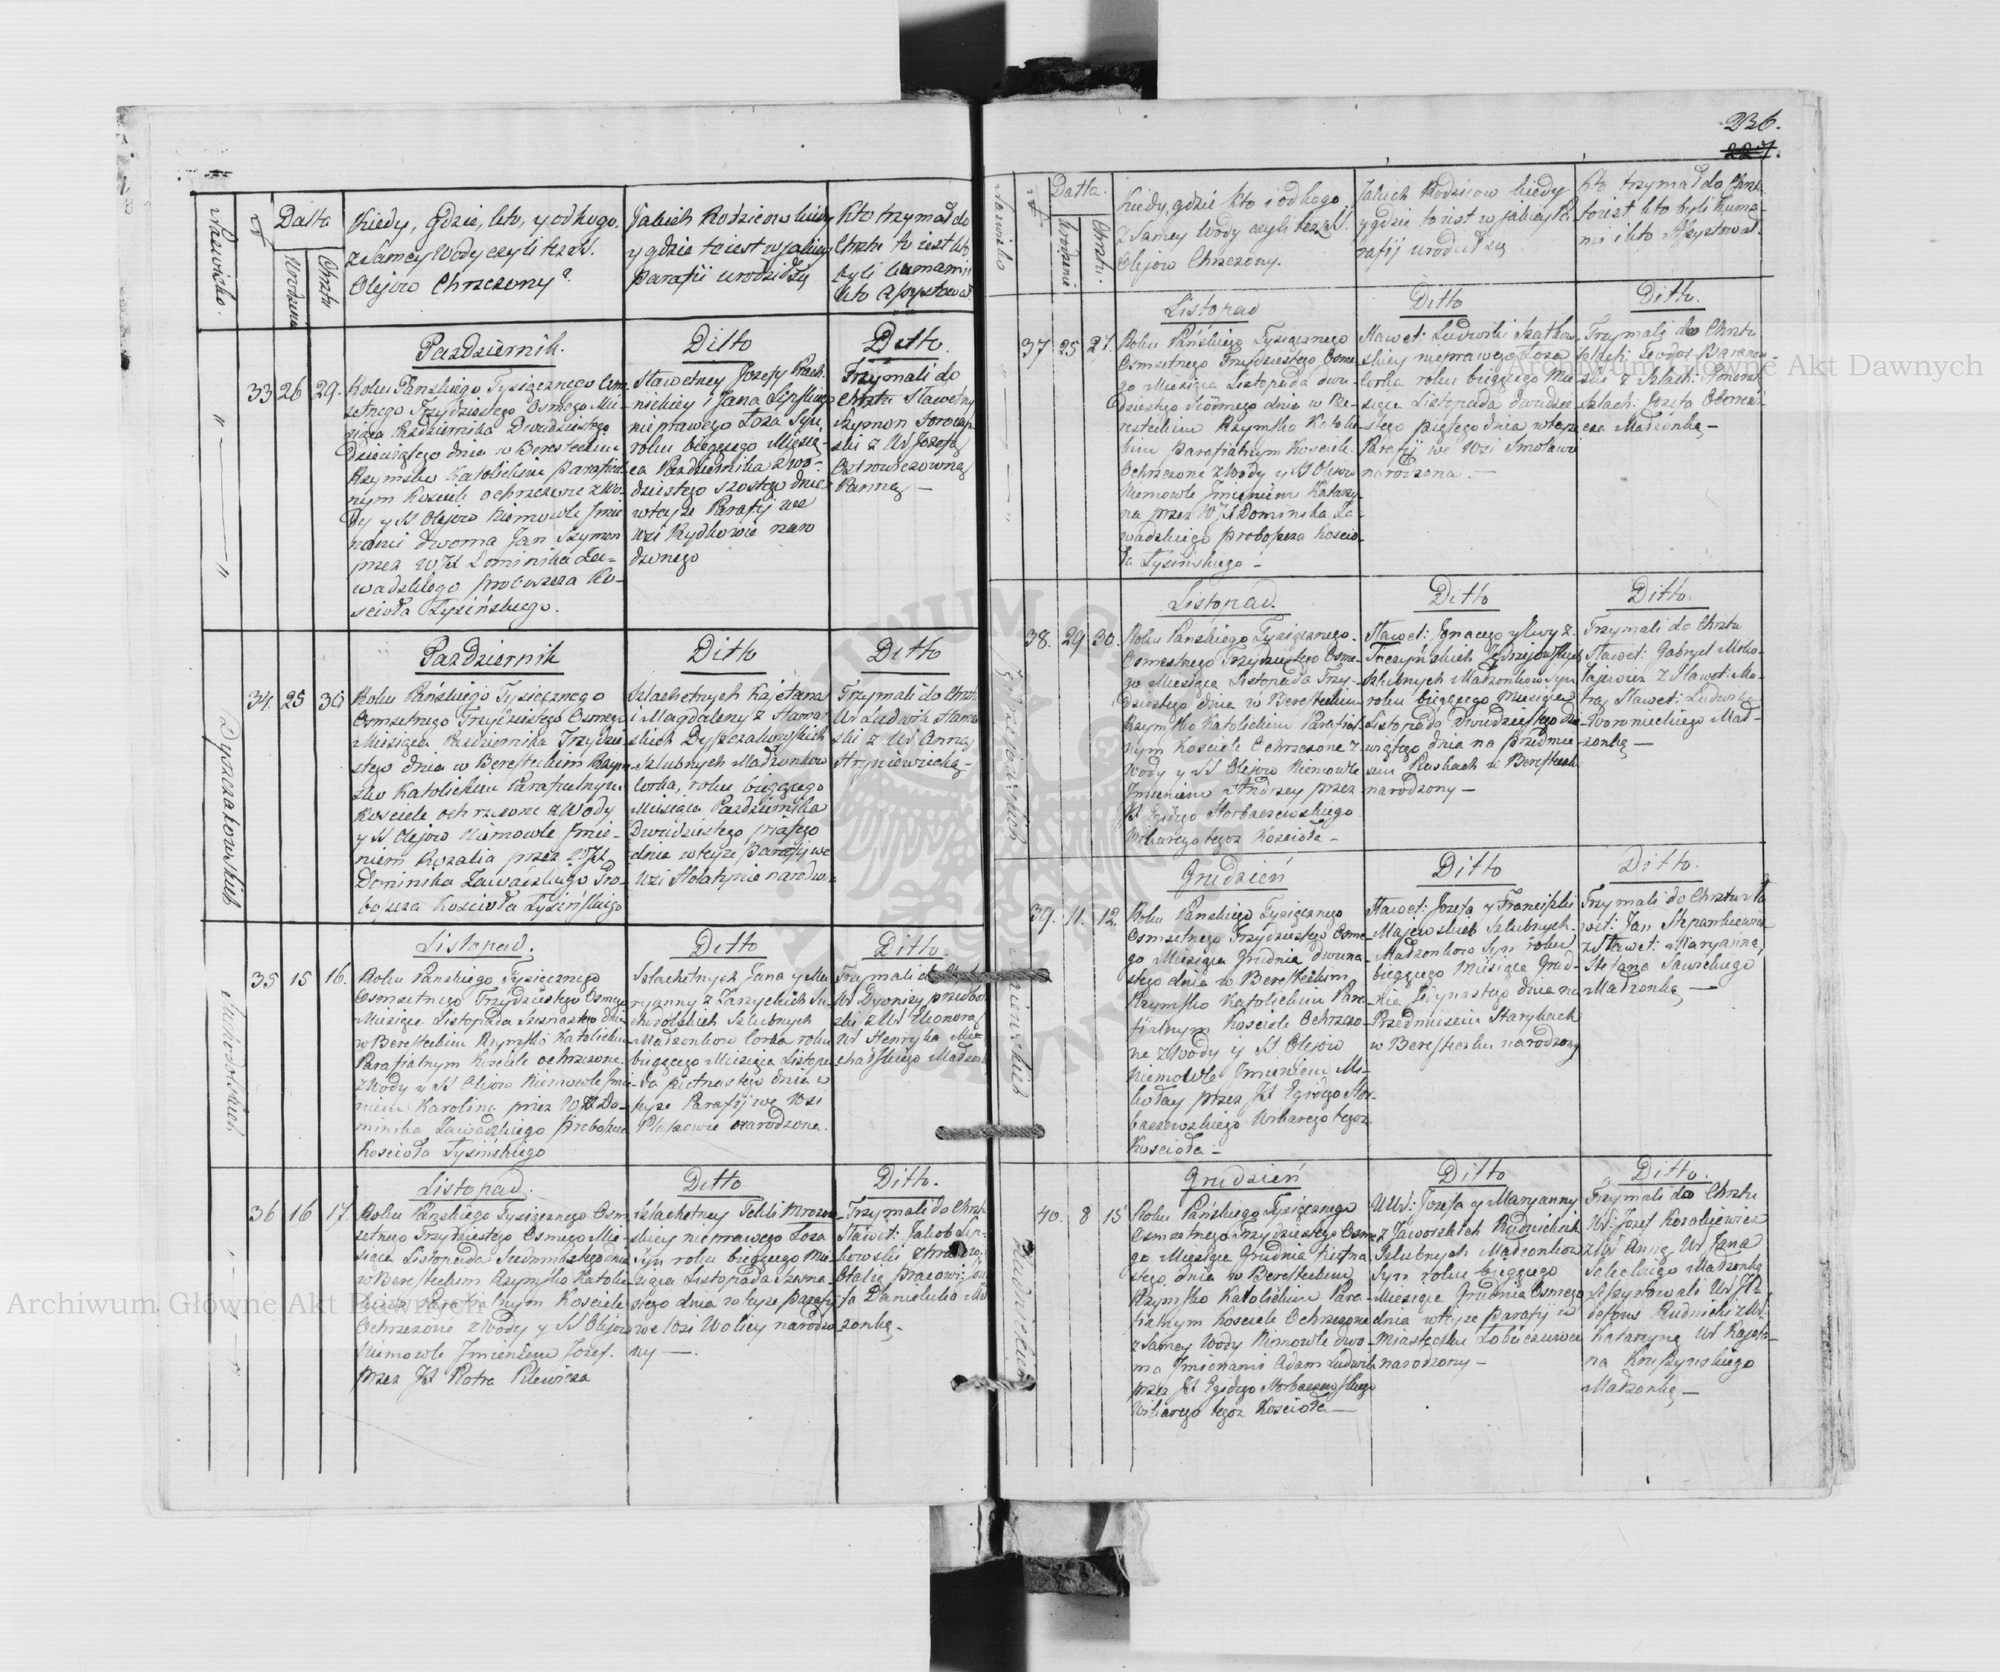 236.
227.
Nazwisko.
N
Datta
Urodzenia
Chrztu
Kiedy, Gdzie, kto, y od kogo,
z Samey Wody czyli też z SS.
Olejów Chrzczony?
Jakich Rodziców kiedy
y gdzie to iest w jakiey
Parafii urodził się
Kto trzymał do
Chrztu to iest kto
byli kumami i
kto Assystował
Pazdziernik.
Ditto
Ditto.
33 26 29.
Roku Pańskiego Tysiącznego Osm-
setnego Trzydziestego Osmego Mie-
siąca Pazdziernika Dwudziestego
Dziewiątego dnia w Beresteckim
Rzymsko Katolickim parafial-
nym Kosciele ochrzczone z Wo-
dy y SS Olejow Niemowle Jmie-
nami dwoma Jan Szymon
przez WJX Dominika Za-
wadzkiego proboszcza Ko-
scioła Łysińskiego.
Sławetney Jozefy
nickiey i Jana Lipskiego
nieprawego Łoża Syn,
roku bieżącego Miesią-
ca Pazdziernika Dwu-
dziestego szostego dnia
w teyże Parafij we
wsi Rydkowie naro
dzonego
Trzymali do
Chrztu Sławetny
Szymon
ski z Ur Jozefą
Ostrowiczowną
Panną —
Pazdziernik
Ditto
Ditto
Dyszczakowskich
34. 25 30
Roku Pańskiego Tysiącznego
Osmsetnego Trzydziestego Osmego
Miesiąca Pazdziernika Trzydzie-
stego dnia w Beresteckim Rzym-
sko Katolickim Parafialnym
Kosciele ochrzczone z Wody
y SS Olejow Niemowle Jmie-
niem Rozalia przez WJX
Dominika Zawadzkiego Pro-
boszcza Koscioła Łysińskiego
Szlachetnych Kajetana
i Magdaleny z
skich Dyszczakowskich
Szlubnych Małżonkow
Corka, roku bieżącego
Miesiąca Pazdziernika
Dwudziestego piątego
dnia w teyże parafij we
Wsi Hołatynie narodzo-
Trzymali do Chrztu
Ur Ludwik
ski z Ur Anną
Hryniewiecką —
Listopad.
Ditto
Ditto.
Suchodolskich
35 15 16.
Roku Pańskiego Tysiącznego
Osmsetnego Trzydziestego Osmego
Miesiąca Listopada Szesnastego dnia
w Beresteckim Rzymsko Katolickim
Parafialnym Kosciele ochrzczone
z Wody y SS Olejow Niemowle Jmie-
niem Karolina przez WJX Do-
minika Zawadzkiego Proboszcza
Koscioła Łysińskiego
Szlachetnych Jana y Ma-
ryanny z Zarzyckich Su-
chodolskich Szlubnych
Małżonkow Corka roku
bieżącego Miesiąca Listopa-
da pietnastego dnia w
teyże Parafij we Wsi
Plaszowie narodzona.
Trzymali do
Ur Dyonizy
ski z Ur Eleonorą
Ur Henryka Mi-
chalskiego Małżon
Listopad.
Ditto
Ditto.
36 16 17.
Roku Pańskiego Tysiącznego Osm
setnego Trzydziestego Osmego Mie-
siąca Listopada Siedmnastego dnia
w Beresteckim Rzymsko Katolic-
kim Parafialnym Kosciele
Ochrzczone z Wody y SS Olejow
Niemowle Jmieniem Jozef.
przez JX Piotra Pilewicza
Szlachetney Tekli Mrozow-
skiey nieprawego Łoża
Syn roku bieżącego Mie-
siąca Listopada Szesna-
stego dnia w teyże parafij
we Wsi Wolicy narodzo-
ny —.
Trzymali do Chrztu
Sławet: Jakob Lip-
kowski z
Danieluka Mał
żonką —
Nazwisko
N
Datta.
Urodzenia
Chrztu.
Kiedy, gdzie kto i od kogo
z Samey Wody czyli też z SS.
Olejow Chrzczony.
Jakich Rodzicow kiedy
y gdzie to iest w jakiey Pa-
rafij urodził się
Kto trzymał do Chrztu
to iest kto byli Kuma-
mi i kto Assystował.
Listopad
Ditto
Ditto.
37 25 27.
Roku Pańskiego Tysiącznego
Osmsetnego Trzydziestego Osme-
go Miesiąca Listopada dwu-
dziestego Siodmego dnia w Be-
resteckim Rzymsko Katolic-
kim parafialnym Kosciele
Ochrzczone z Wody y SS Olejow
Niemowle Jmieniem Katarzy-
na przez WJX Dominika Za-
wadzkiego proboszcza Koscio-
ła Łysińskiego —
Sławet: Ludwiki Szatkow-
skiey nieprawego Łoża
Corka roku bieżącego Mie-
siąca Listopada dwudzie-
stego piątego dnia w teyże
Parafij we Wsi Smolawie
narodzona. —
Trzymali do Chrztu
Szlach: Teodor Baranow-
ski z Szlach: Honorat
Szlach: Jozefa
cza Małżonką —
Listopad.
Ditto
Ditto.
Jędrzejowskich
38. 29 30.
Roku Pańskiego Tysiącznego
Osmsetnego Trzydziestego Osme-
go Miesiąca Listopada Trzy-
dziestego dnia w Beresteckim
Rzymsko Katolickim Parafial-
nym Kosciele Ochrzczone z
Wody y SS Olejow Niemowle
Jmieniem Andrzey przez
JX Egidego Horbaczewskiego
Wikarego tegoż Koscioła —
Sławet: Jgnacego y Ewy z
Taczyńskich Jędrzejowskich
szlubnych Małżonkow Syn
roku bieżącego Miesiąca
Listopada Dwudziestego Dzie-
wiątego dnia na przedmie-
sciu Piaskach w Berestecku
narodzony —
Trzymali do Chrztu
Sławet: Gabryel Miko-
łajewicz z Sławet: Ma-
Sławet: Ludwika
Woronieckiego Mał-
żonką —
Grudzień
Ditto
Ditto.
Majewskich
39. 11. 12.
Roku Pańskiego Tysiącznego
Osmsetnego Trzydziestego Osme-
go Miesiąca Grudnia dwuna-
stego dnia w Beresteckim
Rzymsko Katolickim Para-
fialnym Kosciele Ochrzczo-
ne z Wody y SS Olejow
Niemowle Jmieniem Mi-
kołay przez JX Egidego Hor-
baczewskiego Wikarego tegoż
Koscioła —
Sławet: Jozefa y Franciszki
Majewskich Szlubnych
Małżonkow Syn roku
bieżącego Miesiąca Grud-
nia Jedynastego dnia na
Przedmiesciu Starykach
w Berestecku narodzony
Trzymali do Chrztu Sła
wet: Jan
z Sławet: Maryanną
Stefana Sawickiego
Małżonką —
Grudzień
Ditto
Ditto.
Rudnickich
40. 8 15
Roku Pańskiego Tysiącznego
Osmsetnego Trzydziestego Osme-
go Miesiąca Grudnia Pietna-
stego dnia w Beresteckim
Rzymsko Katolickim Para-
fialnym Kosciele Ochrzczone
z Samey Wody Niemowle dwo-
ma Jmionami Adam Ludwik
przez JX Egidego Horbaczewskiego
Wikarego tegoż Koscioła —
UUr: Jozefa y Maryanny
z Jaworskich Rudnickich
Szlubnych Małżonkow
Syn roku bieżącego
Miesiąca Grudnia Osmego
dnia w teyże Parafij w
Miasteczku Łobaczowce
narodzony —
Trzymali do Chrztu
Ur: Jozef Kozakiewicz
z Ur: Anną Ur Jana
Saleckiego Małżonką
Assystowali Ur Jl-
defons Rudnicki z Ur:
Katarzyną Ur Kajeta-
na Kruszynskiego
Małżonką —
Archiwum Główne Akt Dawnych
Archiwum Główne Akt Dawnych